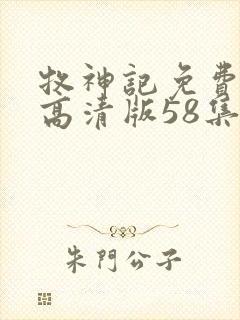 牧神記免費
高清版58集
朱門公子